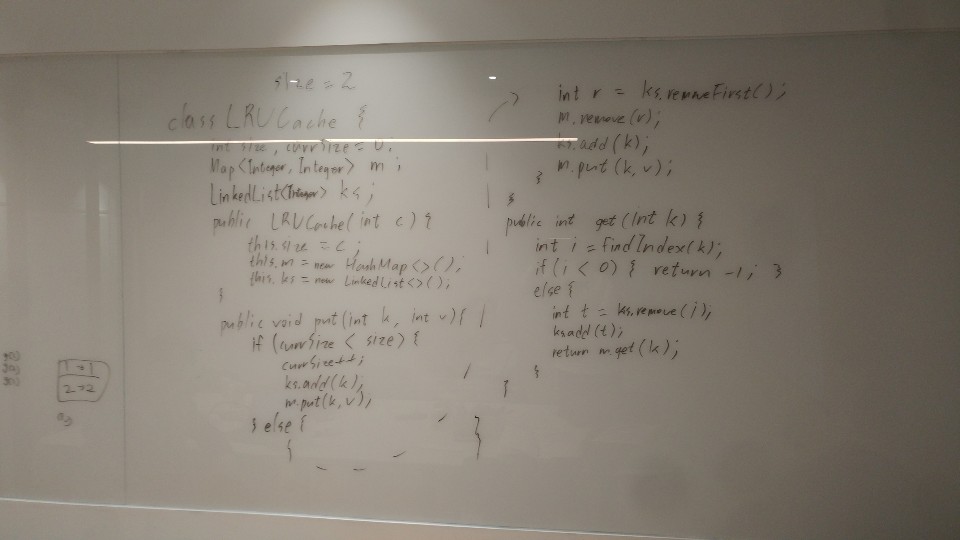 size = 2
class LRUCache {
int size, currSize = 0;
Map<Integer, Integer> m ;
LinkedList<Integer> ks;
public LRUCache(int c) {
this.size = c;
this.m = new HashMap<>();
this.ks = new LinkedList<>();
}
public void put(int k, int v){
if (currSize < size) {
currSize++;
ks.add(k);
m.put(k, v);
} else {
{
}
int r = ks.removeFirst();
m.remove(r);
ks.add(k);
m.put(k, v);
}
}
public int get(int k) {
int i = findIndex(k);
if (i < 0) { return -1; }
else {
int t = ks.remove(i);
ks.add(t);
return m.get(k);
}
}
1→1
2→2